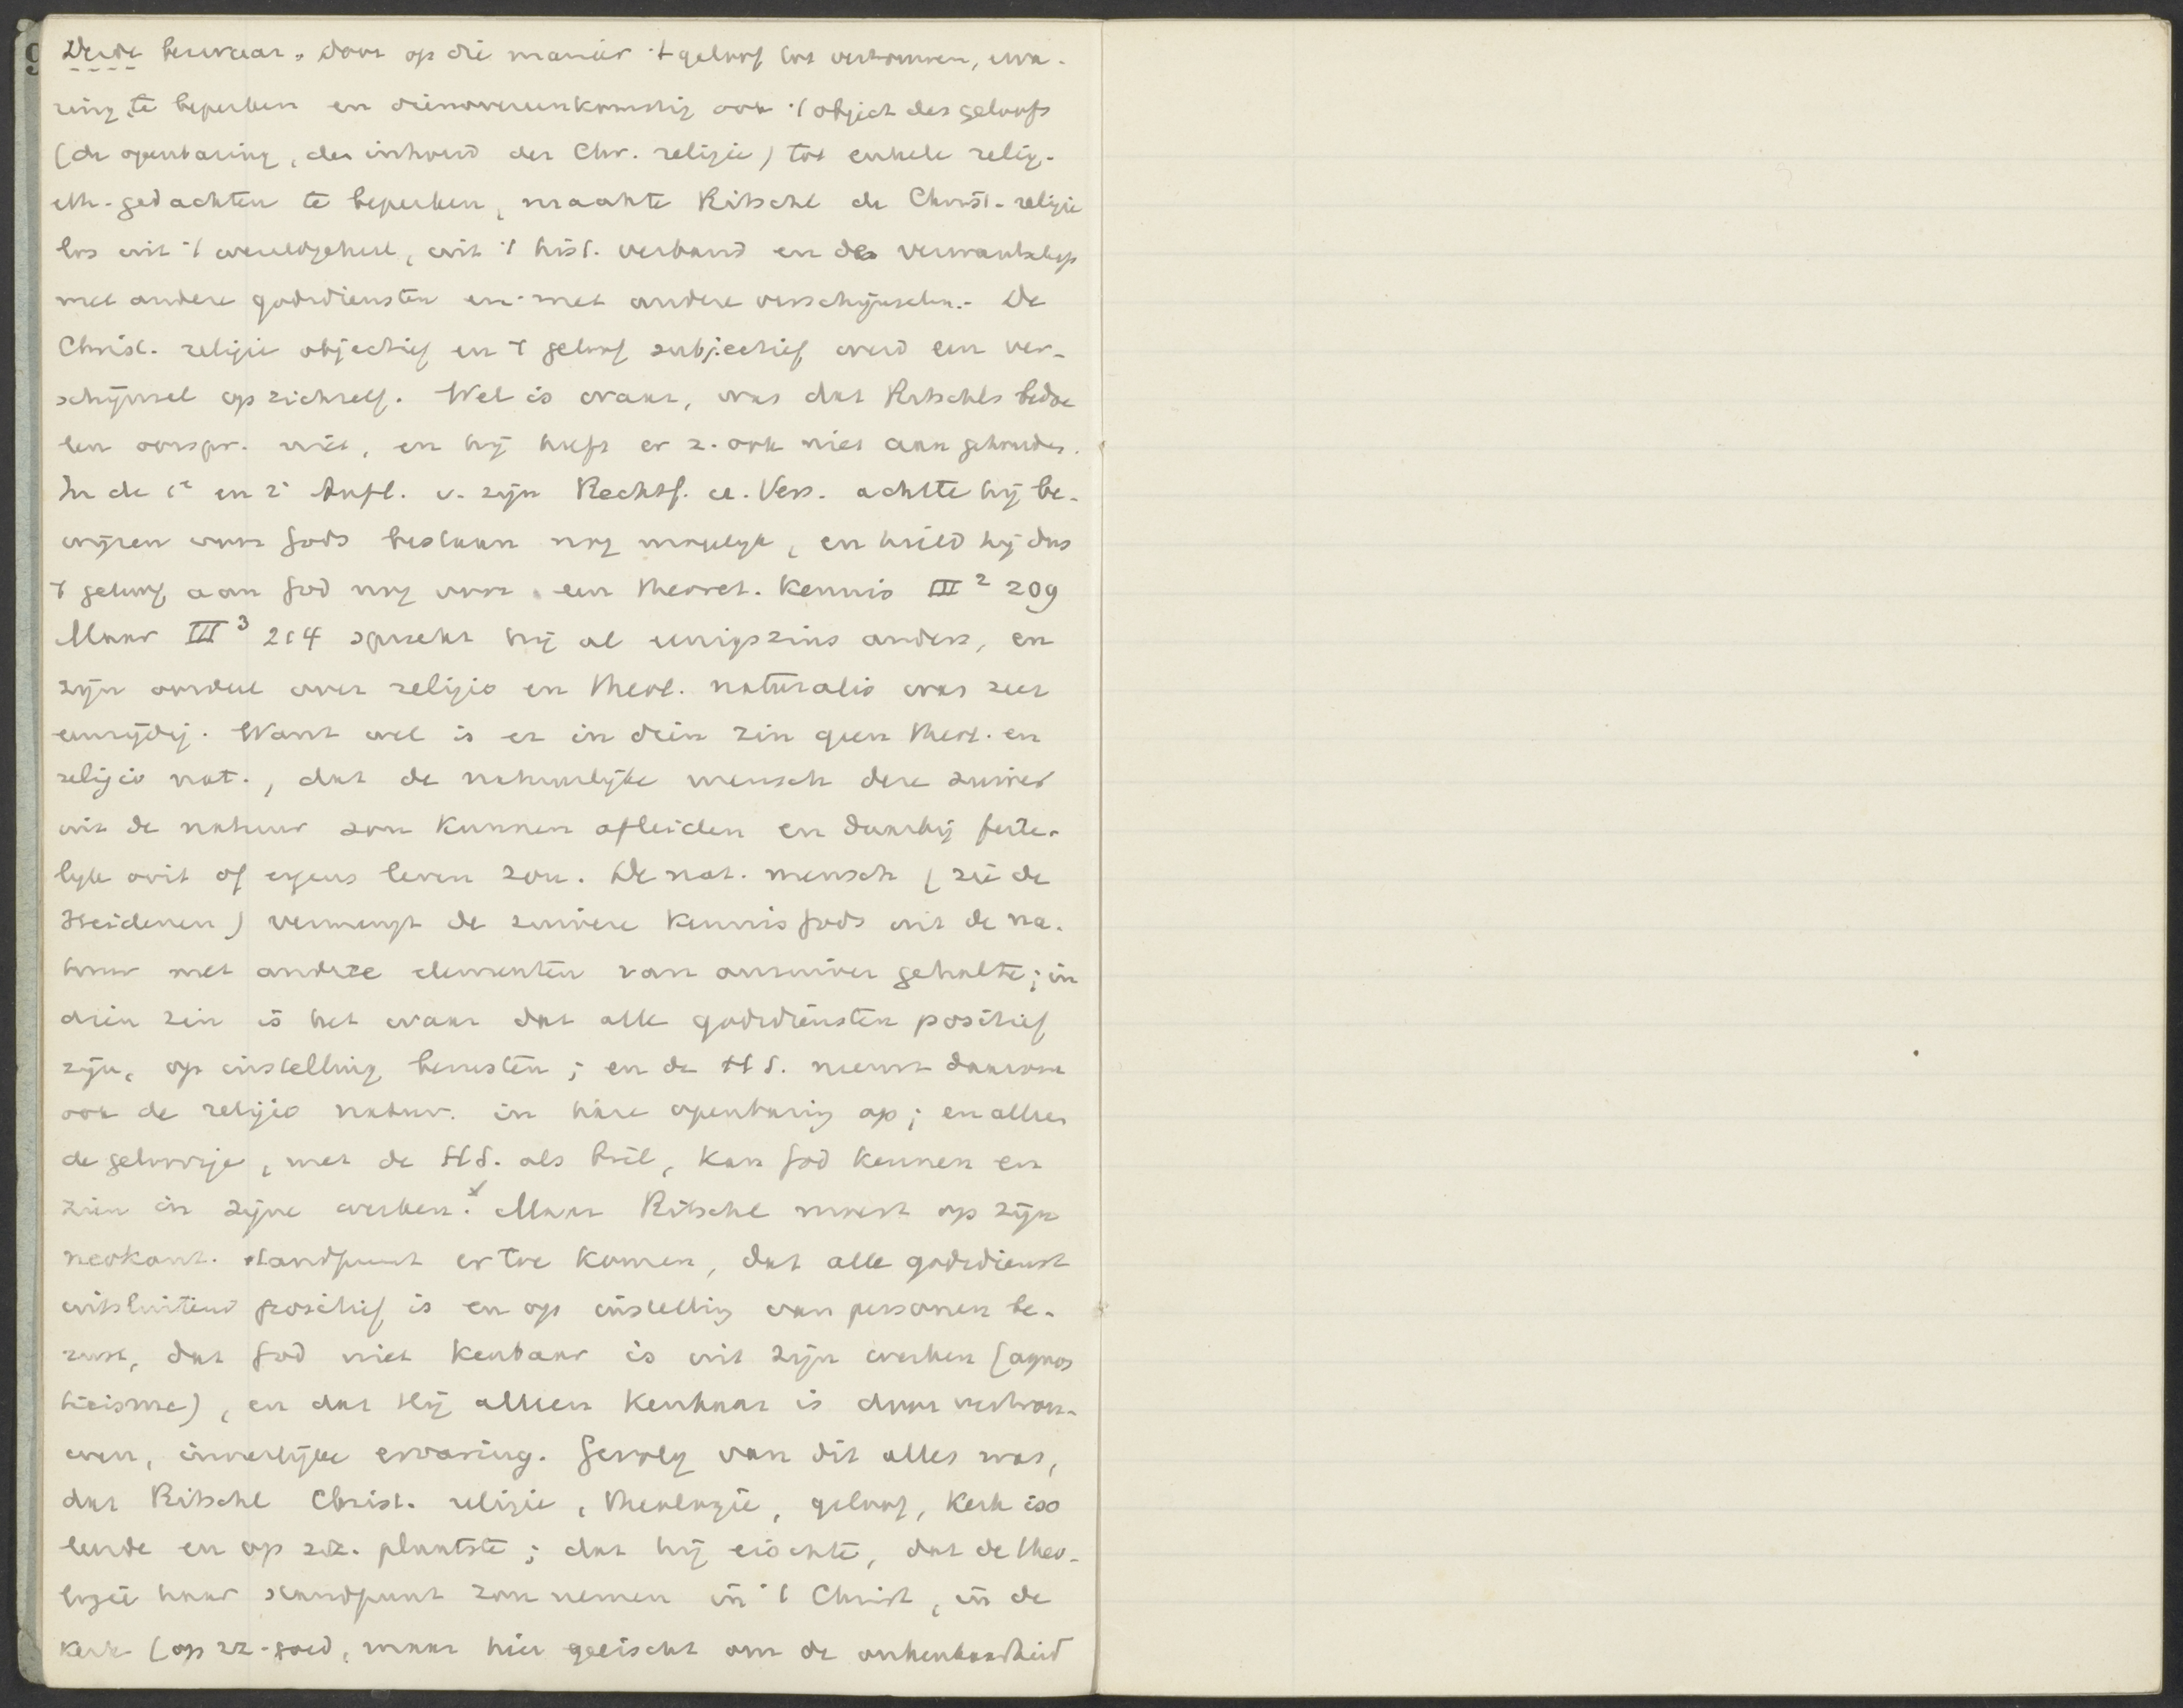 Derde bezwaar. Door op die manier 't geloof tot vertrouwen, erva-
ring te beperken en dienovereenkomstig ook 't object des geloofs
(de openbaring, den inhoud der Chr. religie) tot enkele relig.-
eth. gedachten te beperken, maakte Ritschl de Christ. religie
los uit 't wereldgeheel, uit 't hist. verband en de verwantschap
met andere godsdiensten en met andere verschijnselen. - De
Christ. religie objectief en 't geloof subjectief werd een ver-
schijnsel op zichzelf. Wel is waar, was dat Ritschls bedoe
len oorspr. niet, en hij heeft er z. ook niet aan gehouden.
In de 1e en 2e Aufl. v. zijn Rechtf. u. Vers. achtte hij be-
wijzen voor Gods bestaan nog mogelijk, en hield hij dus
't geloof aan God nog voor een theoret. kennis III 2 209
Maar III 3 214 spreekt hij al eenigszins anders, en
zijn oordeel over religio en theol. naturalis was zeer
eenzijdig. Want wel is er in dien zin geen theol. en
religio nat., dat de natuurlijke mensch deze zuiver
uit de natuur zou kunnen afleiden en daarbij feite-
lijk ooit of ergens leven zou. De nat. mensch (zie de
Heidenen) vermengt de zuivere kennis Gods uit de na-
tuur met andere elementen van onzuiver gehalte; in
dien zin is het waar dat alle godsdiensten positief
zijn, op instelling berusten; en de H S. neemt daarom
ook de religio natur. in hare openbaring op; en alleen
de geloovige, met de H S. als bril, kan God kennen en
zien in zijne werken. x Maar Ritschl moest op zijn
neokant. standpunt er toe komen, dat alle godsdienst
uitsluitend positief is en op instelling van personen be-
rust, dat God niet kenbaar is uit zijn werken (agnos
ticisme), en dat Hij alleen kenbaar is door vertrou-
wen, innerlijke ervaring. Gevolg van dit alles was,
dat Ritschl Christ. religie, theologie, geloof, kerk iso
leerde en op zz. plaatste; dat hij eischte, dat de theo-
logie haar standpunt zou nemen in 't Christ, in de
kerk (op zz. goed, maar hier geëischt om de onkenbaarheid